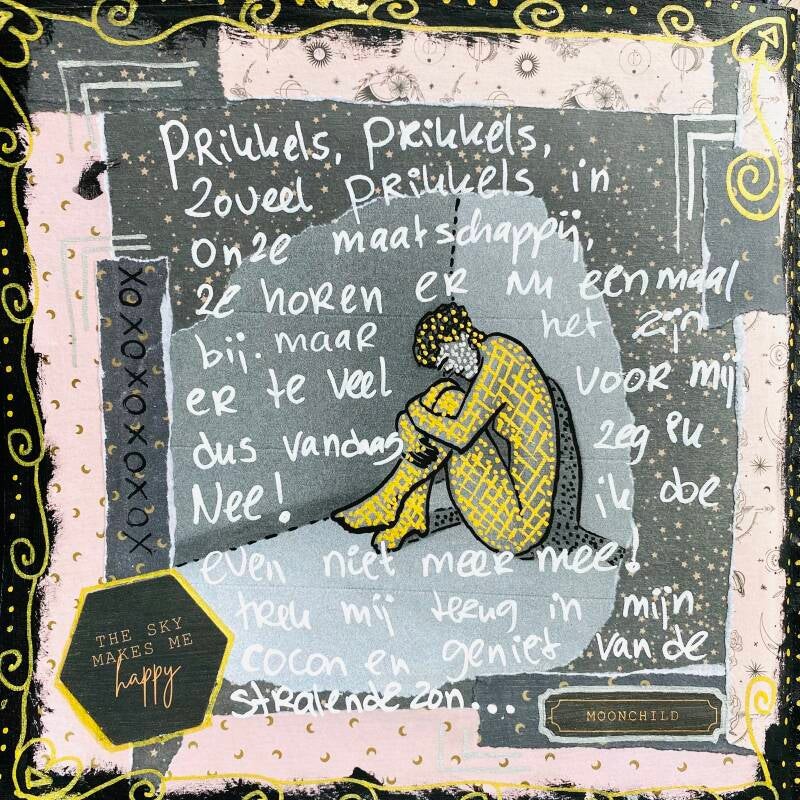 Prikkels, prikkels,
zoveel prikkels in
onze maatschappij,
ze horen er nu eenmaal
bij. maar het zijn
er te veel voor mij
dus vandaag zeg ik
Nee! ik doe
even niet meer mee!
trek mij terug in mijn
cocon en geniet van de
stralende zon...
XOXOXOXOXOXOX
THE SKY
MAKES ME
happy
MOONCHILD